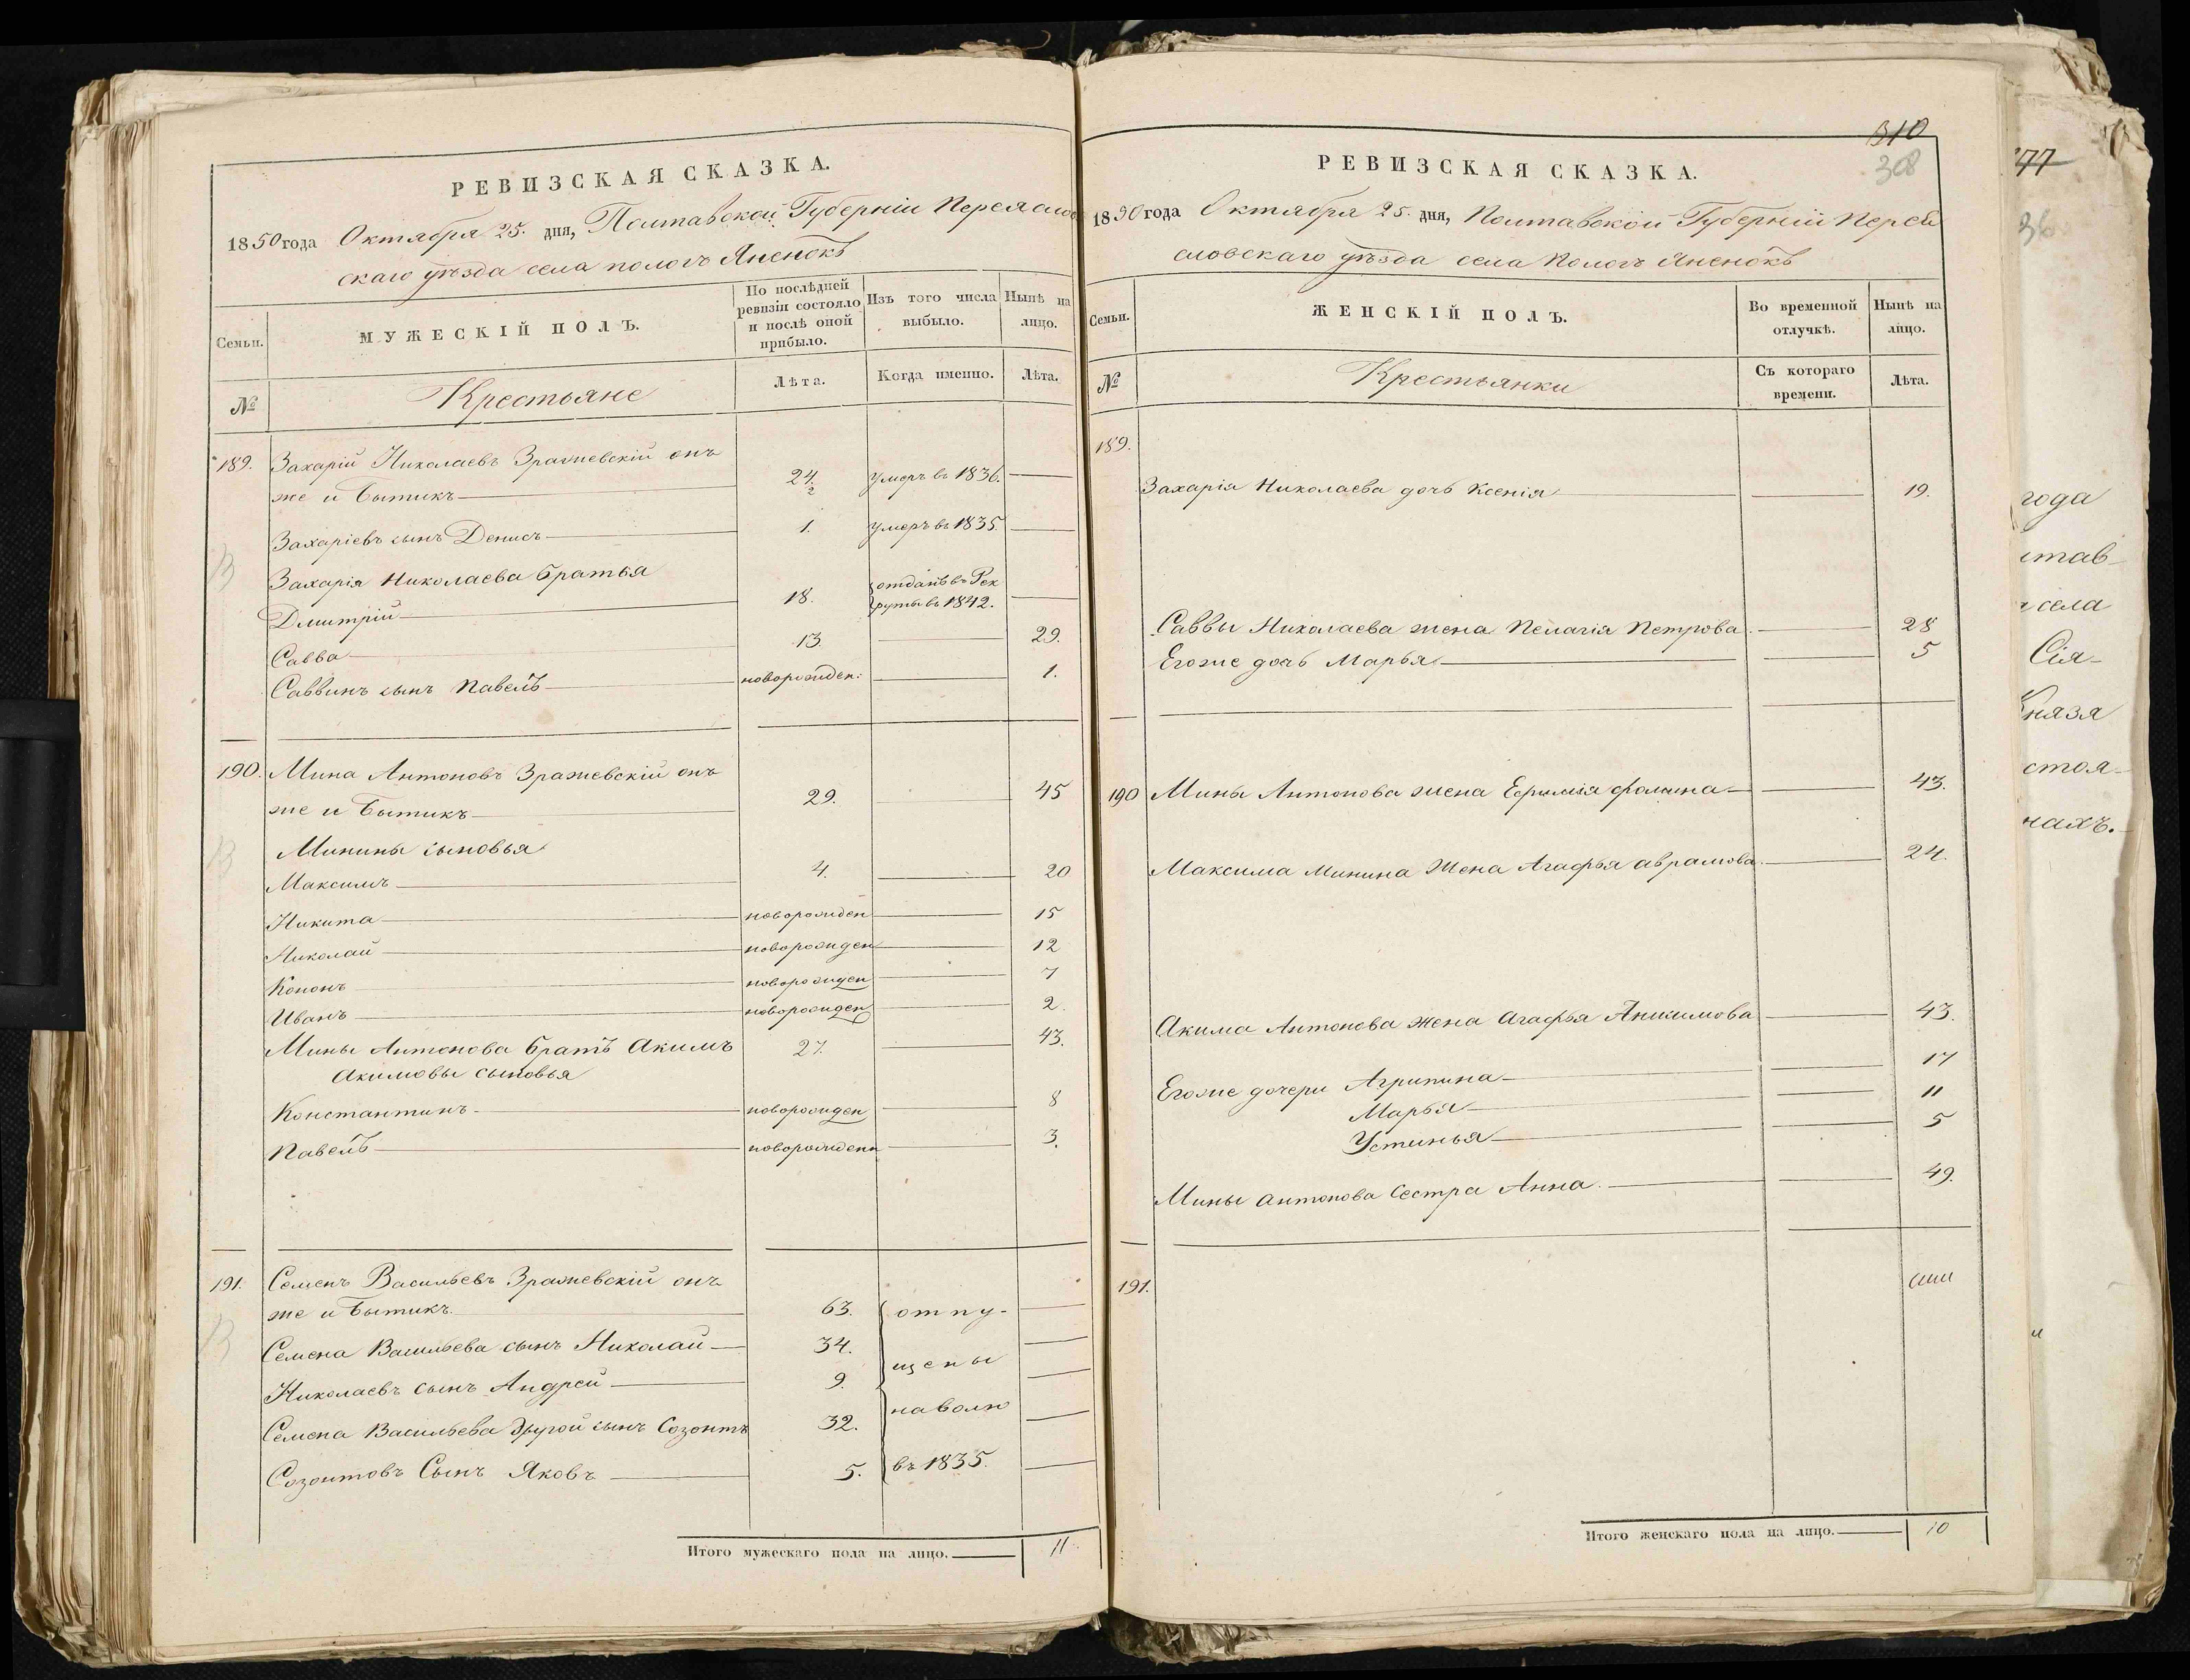 РЕВИЗСКАЯ СКАЗКА.
1850 года Октября 25. дня, Полтавской Губерніи Переясло
скаго уѣзда села пологъ Яненокъ
Семьи.
МУЖЕСКІЙ ПОЛЪ.
По послѣдней ревизіи состояло и послѣ оной прибыло.
Изъ того числа выбыло.
Нынѣ на лицо.
№
Крестьяне
Лѣта.
Когда именно.
Лѣта.
189. Захарій Николаевъ Зражевскій онъ
же и Бытикъ 24. 2 умеръ въ 1836.
Захаріевъ сынъ Денисъ 1. умеръ въ 1835.
Захарія Николаева братья
Дмитрій 18. отданъ въ Рек
руты въ 1842.
Савва 13. 29.
Саввинъ сынъ Павелъ новорожден: 1.
190. Мина Антоновъ Зражевскій онъ
же и Бытикъ 29. 45
Минины сыновья
Максимъ 4. 20
Никита новорожден 15
Николай новорожден 12
Кононъ новорожден 7
Иванъ новорожден 2.
Мины Антонова братъ Акимъ 27. 43.
Акимовы сыновья
Константинъ новорожден 8
Павелъ новорожденн 3.
191. Семенъ Васильевъ Зражевскій онъ
же и Бытикъ. 63. отпу-
Семена Васильева сынъ Николай 34.
щены
Николаевъ сынъ Андрей 9.
Семена Васильева другой сынъ Созонтъ 32. наволю
Созонтовъ Сынъ Яковъ 5. въ 1835.
Итого мужескаго пола на лицо. 11
310
308
РЕВИЗСКАЯ СКАЗКА.
1850 года Октября 25. дня, Полтавской Губерніи Перея
словскаго уѣзда села Пологъ Яненокъ
Семьи.
ЖЕНСКІЙ ПОЛЪ.
Во временной отлучкѣ.
Нынѣ на лицо.
№
Крестьянки
Съ котораго времени.
Лѣта.
189.
Захарія Николаева дочь Ксенія 19.
Саввы Николаева жена Пелагія Петрова 28
Егоже дочь Марья 5
190 Мины Антонова жена Ефимія Фомина 43.
Максима Минина Жена Агафья Аврамова 24.
Акима Антонова жена Агафья Аникимова 43.
Егоже дочери Агрипина 17
Марья 11
Устинья 5
Мины Антонова Сестра Анна. 49.
191.
Итого женскаго пола на лицо. 10
77
36
года
села
Сія-
Князя
стоя-